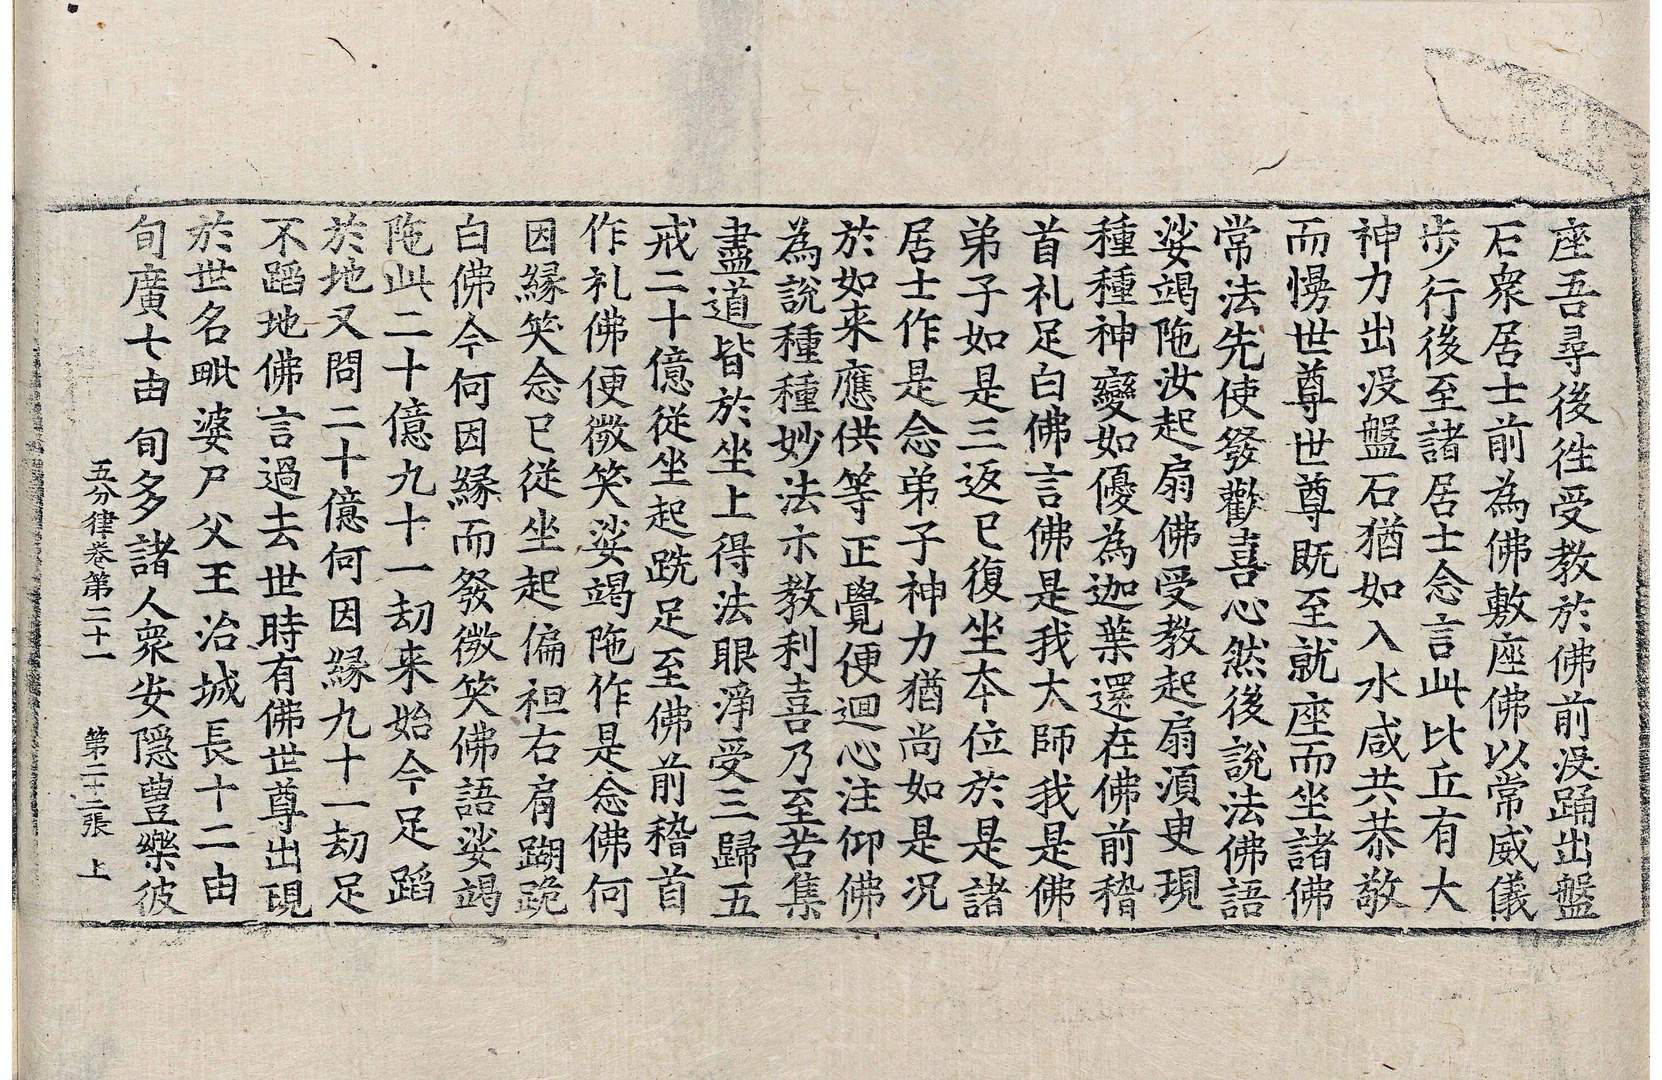 座吾尋後徃受教於佛前没踊出盤
石衆居士前為佛敷座佛以常威儀
步行後至諸居士念言此比丘有大
神力出没盤石猶如入水咸共恭敬
而慢世尊世尊既至就座而坐諸佛
常法先使發歡喜心然後說法佛語
娑竭陁汝起扇佛受教起扇湏臾現
種種神變如優為迦葉還在佛前稽
首礼足白佛言佛是我大師我是佛
弟子如是三返已復坐本位於是諸
居士作是念弟子神力猶尚如是况
於如来應供等正覺便迴心注仰佛
為說種種妙法示教利喜乃至苦集
盡道皆於坐上得法眼淨受三歸五
戒二十億從坐起跣足至佛前稽首
作礼佛便微笑娑竭陁作是念佛何
因緣笑念已從坐起偏袒右肩跪跪
白佛今何因緣而發微笑佛語娑竭
陁此二十億九十一劫来始今足蹈
於地又問二十億何因緣九十一劫足
不蹈地佛言過去世時有佛世尊出現
於世名毗婆尸父王治城長十二由
旬廣七由旬多諸人衆安隱豊樂彼
五分律卷第二十一 第二十二張 上